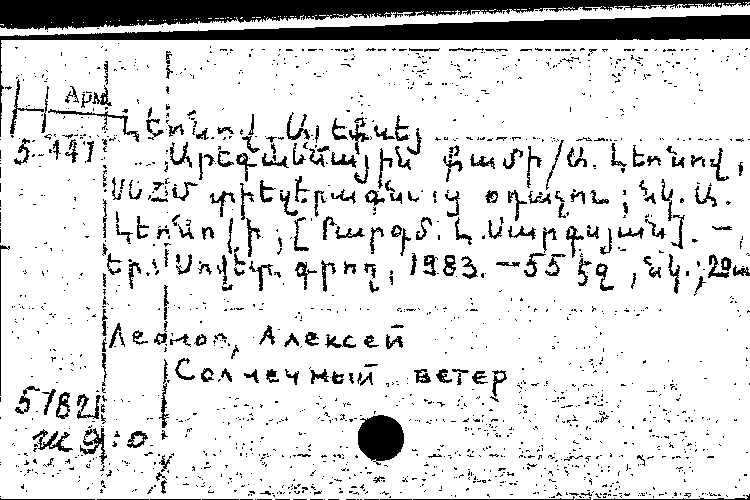 Арм.
5-447
Լեոնով Ալեքսեյ
Արեգակնային քամի/Ա. Լեոնով,
ՍՍՀՄ տիեզերագնաց օդաչու; նկ. Ա.
Լեոնովի; [Թարգմ. Լ. Սարգսյան]. –
Եր.: Սովետ. գրող, 1983. – 55 էջ, նկ.; 20սմ
Леонов, Алексей
Солнечный ветер
57821